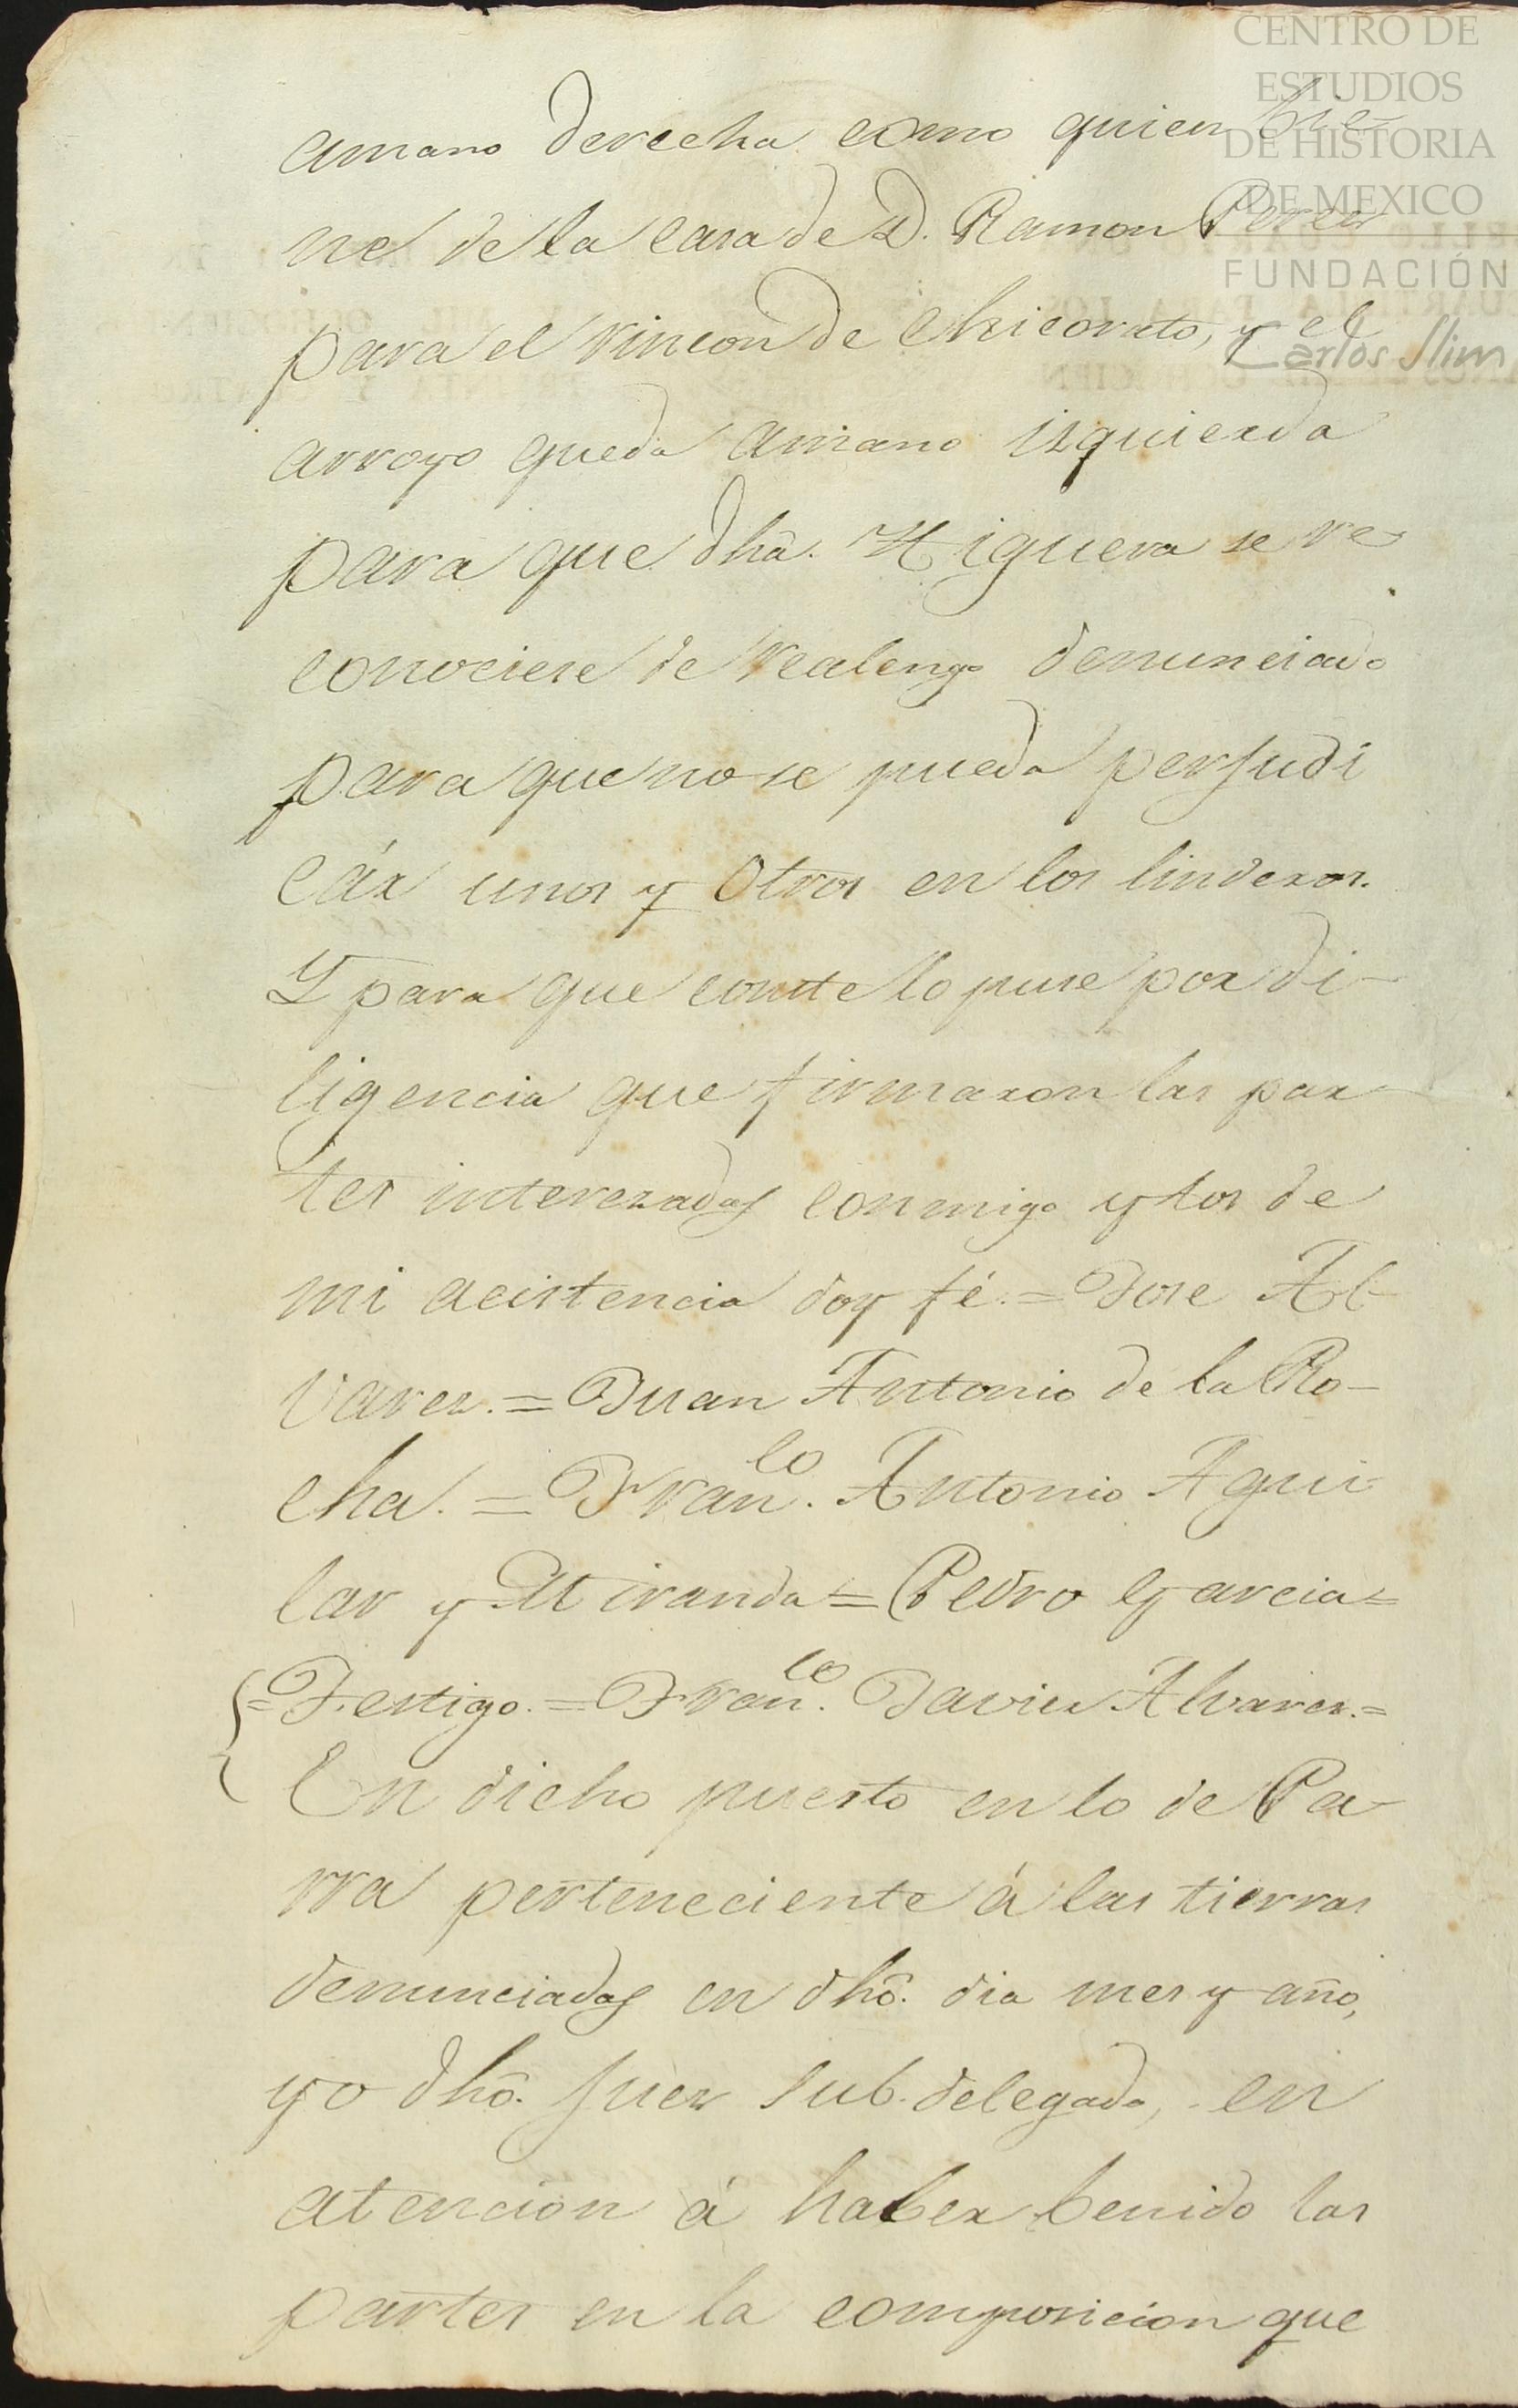 CENTRO DE
ESTUDIOS
DE HISTORIA
DE MEXICO
FUNDACIÓN
Carlos Slim
amano derecha como quien bie-
ne de la casa de D. Ramon Perez
para el rincon de Chicorato, y el
arroyo queda amano izquierda
para que dha. Higuera se re-
conociese de realengo denunciado
para que no se pueda perjudi
cár unos y otros en los linderos.
Y para que conste lo puse por di-
ligencia que firmaron las par-
tes interezadas conmigo y los de
mi acistencia doy fé. = Jose Al-
varez. = Juan Antonio de la Ro-
cha. = Fran.co Antonio Agui-
lar y Miranda = Pedro Garcia =
= Testigo. = Fran.co Javier Alvarez. =
En dicho puesto en lo de Pa-
rra perteneciente á las tierras
denunciadas en dhô. dia mes y año,
yo dhô. Juez Sub-delegado, en
atencion á haber benido las
partes en la composicion que